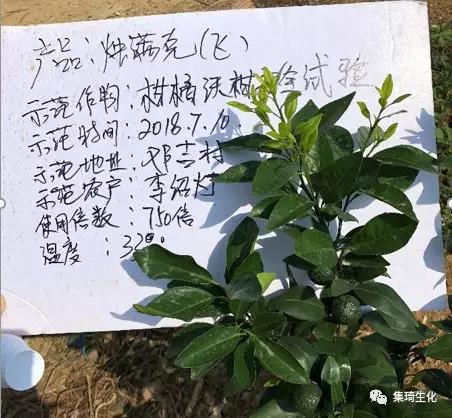 产品：烛蕗克（飞）
示范作物：柑橘沃柑 试验
示范时间：2018.7.10
示范地址：邓吉村
示范农户：李绍灯
使用倍数：750倍
温度：33
集琦生化